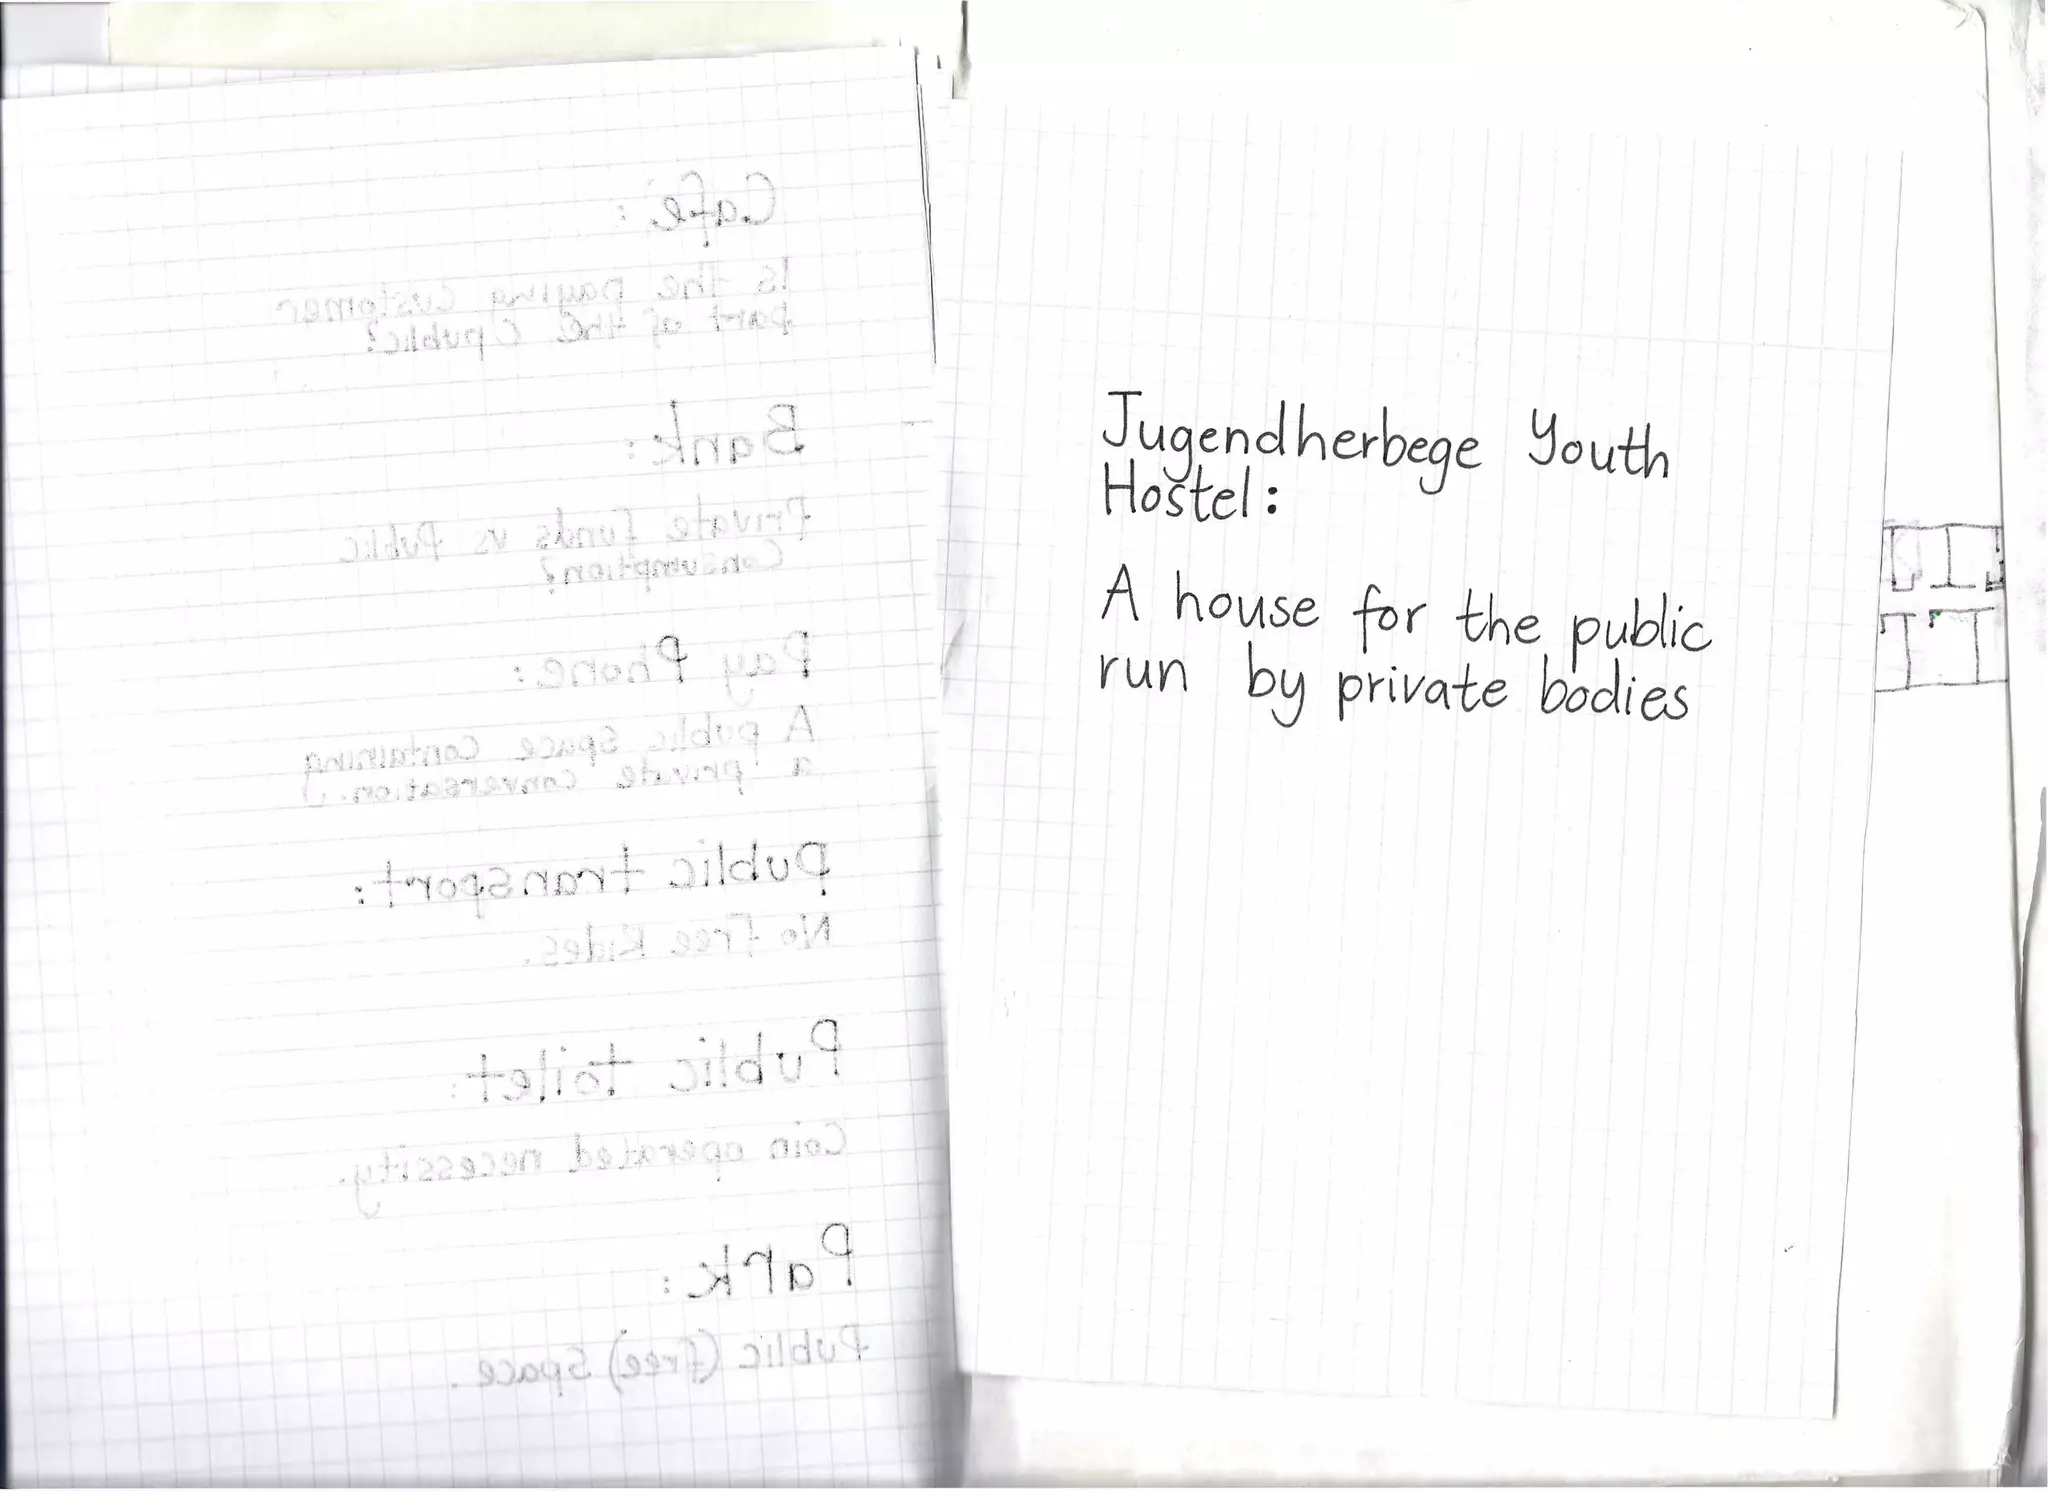 Café:
Is the paying customer
part of the (public?
Bank:
Private funds vs Public
Consumption?
Pay Phone:
A public space containing
a private conversation.
Public transport:
No free Rides.
Public toilet:
Coin operated necessity.
Park:
Public (free) Space.
Jugendherbege Youth
Hostel:
A house for the public
run by private bodies